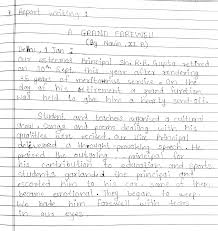 * Report Writing :
A GRAND FAREWELL
(By Navin, XI B)
Delhi, 1 Jan :
Our esteemed Principal Shri R.K. Gupta retired
on 10th Sept. this year after rendering
35 years of meritorious service. On the
day of his retirement a grand function
was held to give him a hearty send off.
Student and teachers organised a cultural
meet. Songs and poems dealing with his
qualities were recited. Our vice Principal
delivered a thought provoking speech. He
praised the outgoing principal for
his contribution to education and sports.
Students garlanded the principal and
escorted him to his car. Some of them
became emotional. They began to weep
We bade him farewell with tears
in our eyes.